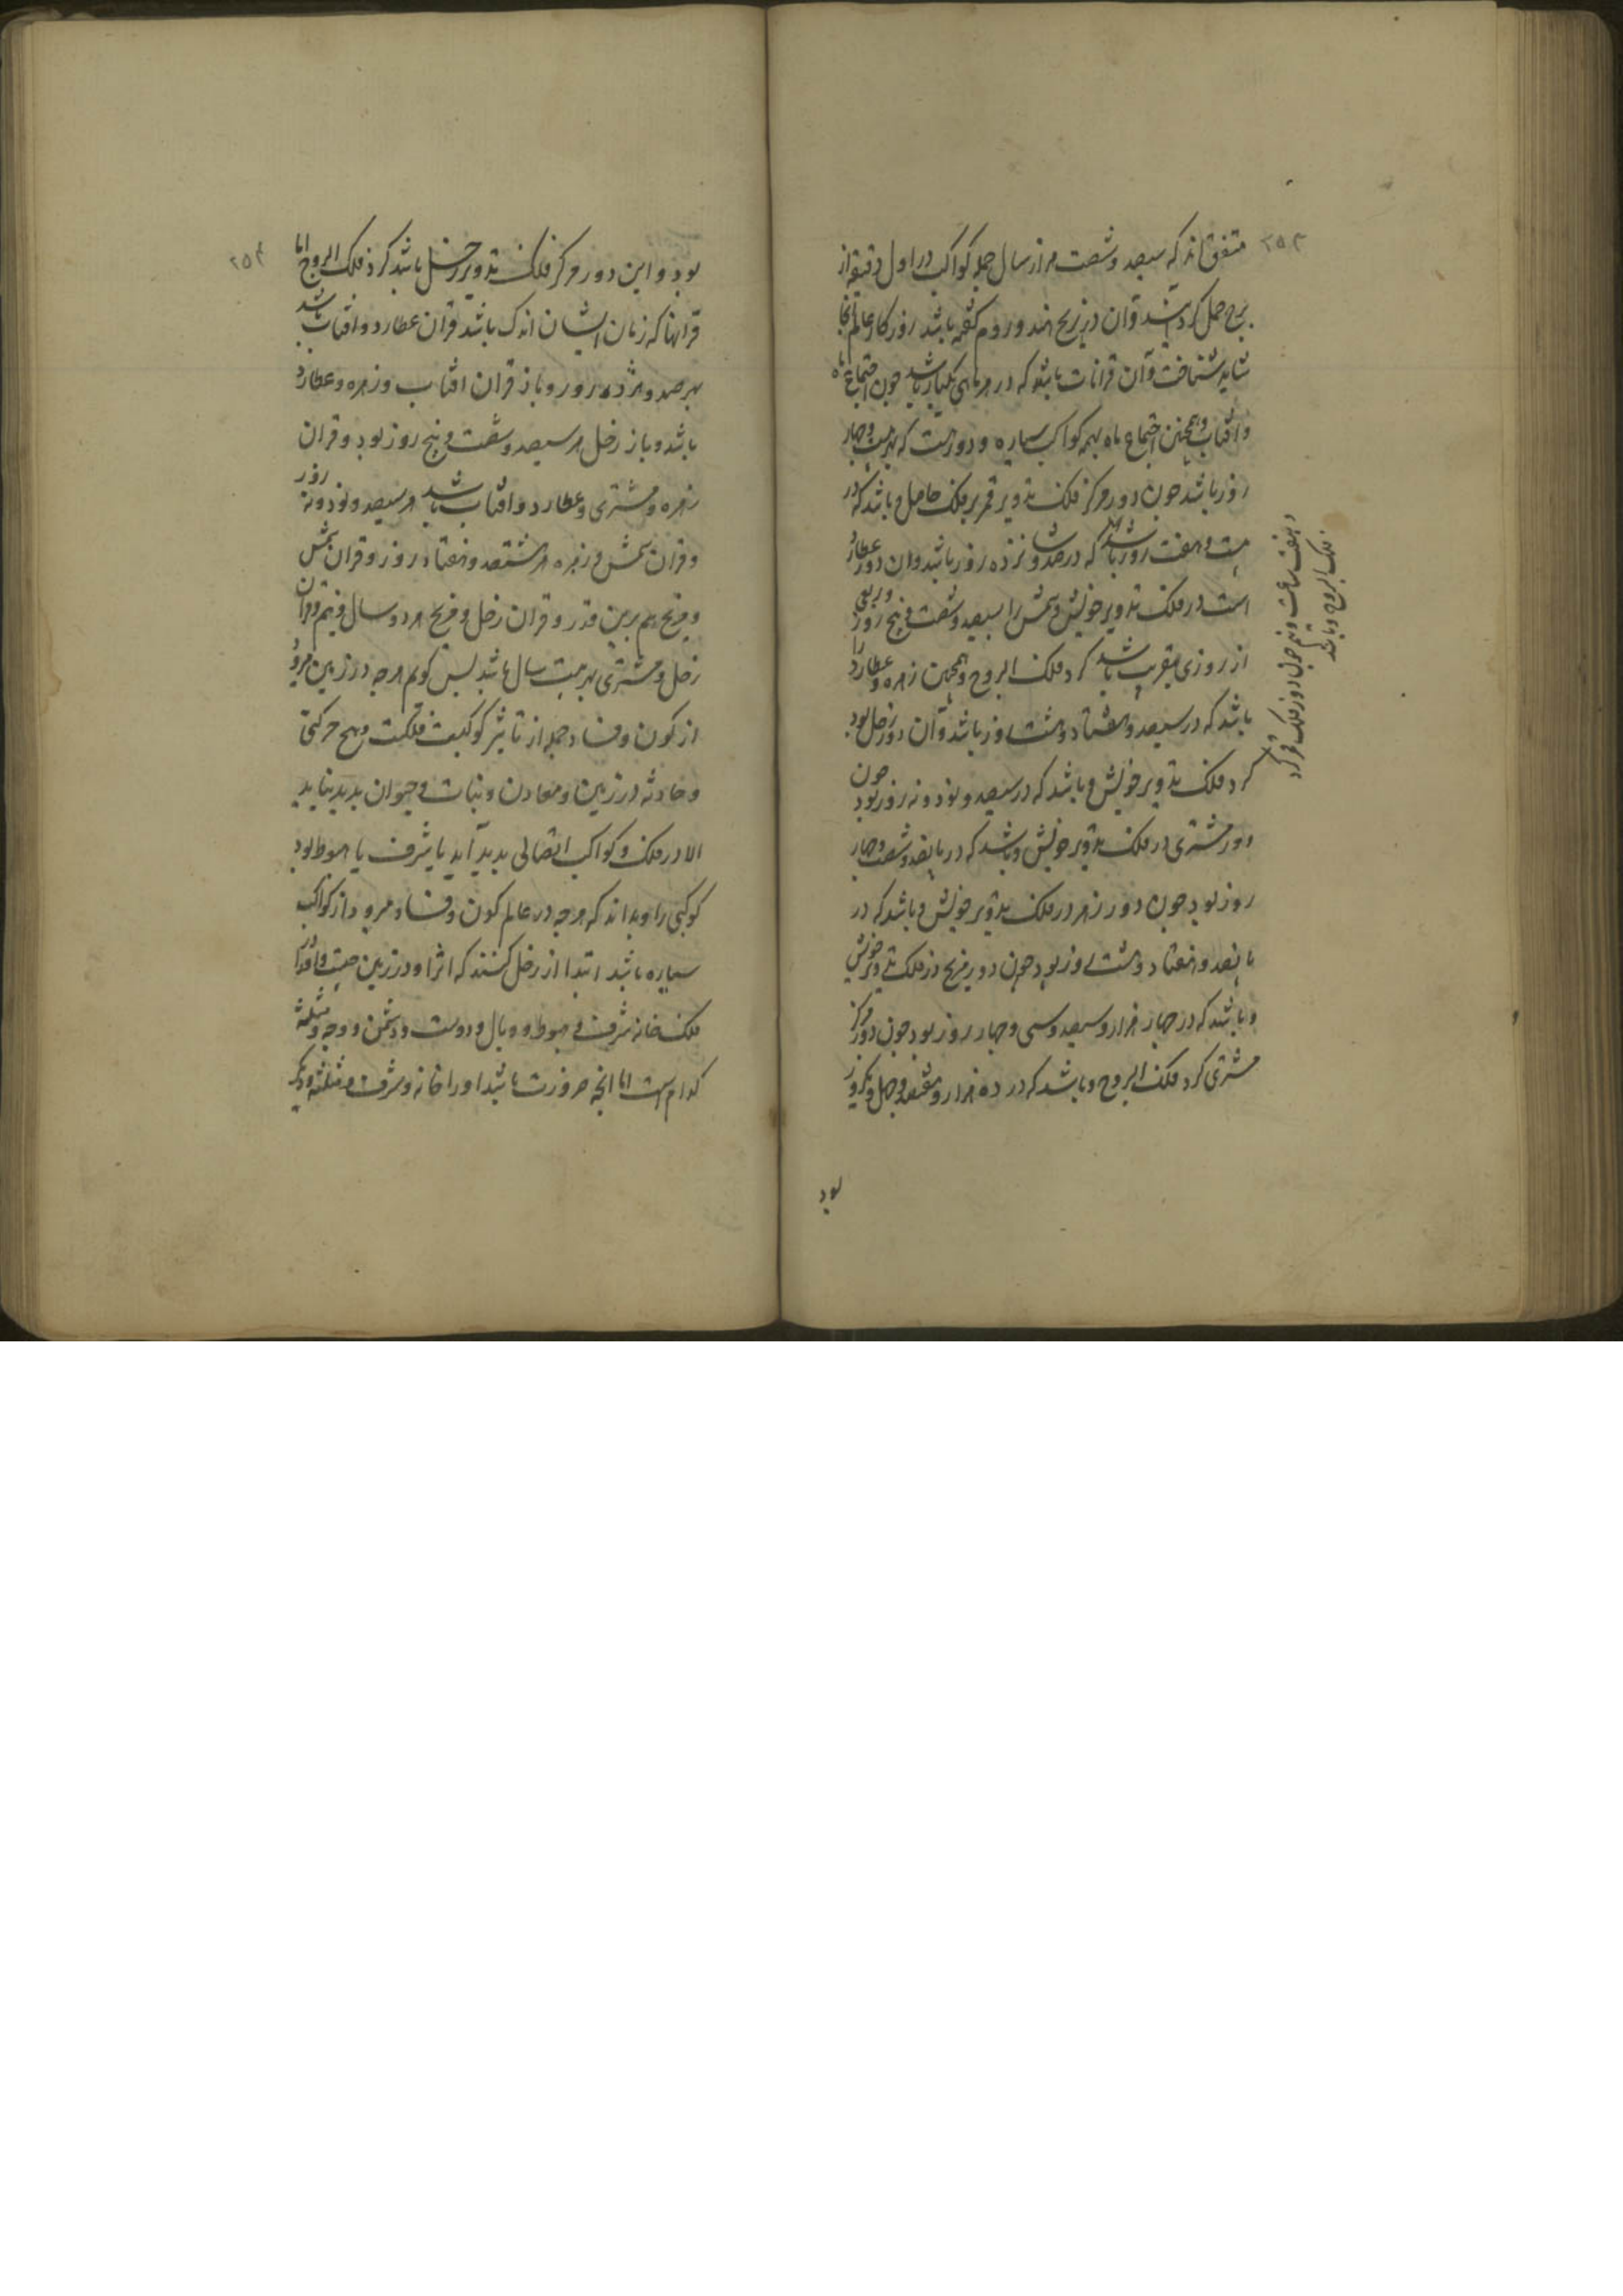 ۲۵۳
متفق‌اند که سیصد و شصت هزار سال جمله کواکب در اول دقیقه از
برج حمل گرد آیند و آن در زیج هند و روم گفته باشد روزگار عالم آنجا
شاید شناخت و آن قرانات باشد که در هر ماهی یکبار باشد چون اجتماع ماه
و آفتاب و همچنین اجتماع ماه بهمه کواکب سیاره و دوریست که بهر بیست و چهار
روز باشد چون دور مرکز فلک تدویر قمر بر فلک حامل و باشد که در
بیست و هفت روز باشد که در صد و شانزده روز باشد و آن دور عطارد
است در فلک تدویر خویش و شمس را سیصد و شصت و پنج روز و ربعی
از روزی بتقریب باشد گرد فلک البروج و همچنین زهره و عطارد را
باشد که در سیصد و هفتاد و هشت روز باشد و آن دور زحل بود
گرد فلک تدویر خویش و باشد که در سیصد و نود و نه روز بود چون
دور مشتری در فلک تدویر خویش و باشد که در پانصد و شصت و چهار
روز بود چون دور زهره در فلک تدویر خویش و باشد که در
پانصد و هفتاد و هشت روز بود چون دور مریخ در فلک تدویر خویش
و باشد که در چهار هزار و سیصد و سی و چهار روز بود چون دور مرکز
مشتری گرد فلک البروج و باشد که در ده هزار و هفتصد و چهل و یکروز
بود
و هفت ساعت و نیم چون دور فلک قمر گرد
فلک البروج و باشد
۲۵۴
بود و این دور مرکز فلک تدویر زحل باشد گرد فلک البروج اما
قرانها که زمان ایشان اندک باشد قران عطارد و آفتاب باشد
بهر صد و هژده روز و باز قران آفتاب و زهره و عطارد
باشد و باز زحل هر سیصد و شصت و پنج روز بود و قران
زهره و مشتری و عطارد و آفتاب باشد هر سیصد و نود و نه روز
و قران شمس و زهره هر هشتصد و هفتاد روز و قران شمس
و مریخ هم برین قدر و قران زحل و مریخ هر دو سال و نیم و قران
زحل و مشتری بهر بیست سال باشد پس گویم هرچه در زمین میرود
از کون و فساد جمله از تاثیر کوکبست فلکست و هیچ حرکتی
و حادثه در زمین و معادن و نبات و حیوان پدید نیاید
الا در فلک و کواکب اتصالی پدید آید یا شرف یا هبوط بود
کوکبی را و بداند که هرچه در عالم کون و فساد میرود از کواکب
سیاره باشد ابتدا از زحل کنند که اثر او در زمین چیست و او را
فلک خانه شرف و هبوط و وبال و دوست و دشمن و وجه و مثلثه
کدام است اما آنچه ضرورت باشد او را خانه و شرف و مثلثه و دیگر